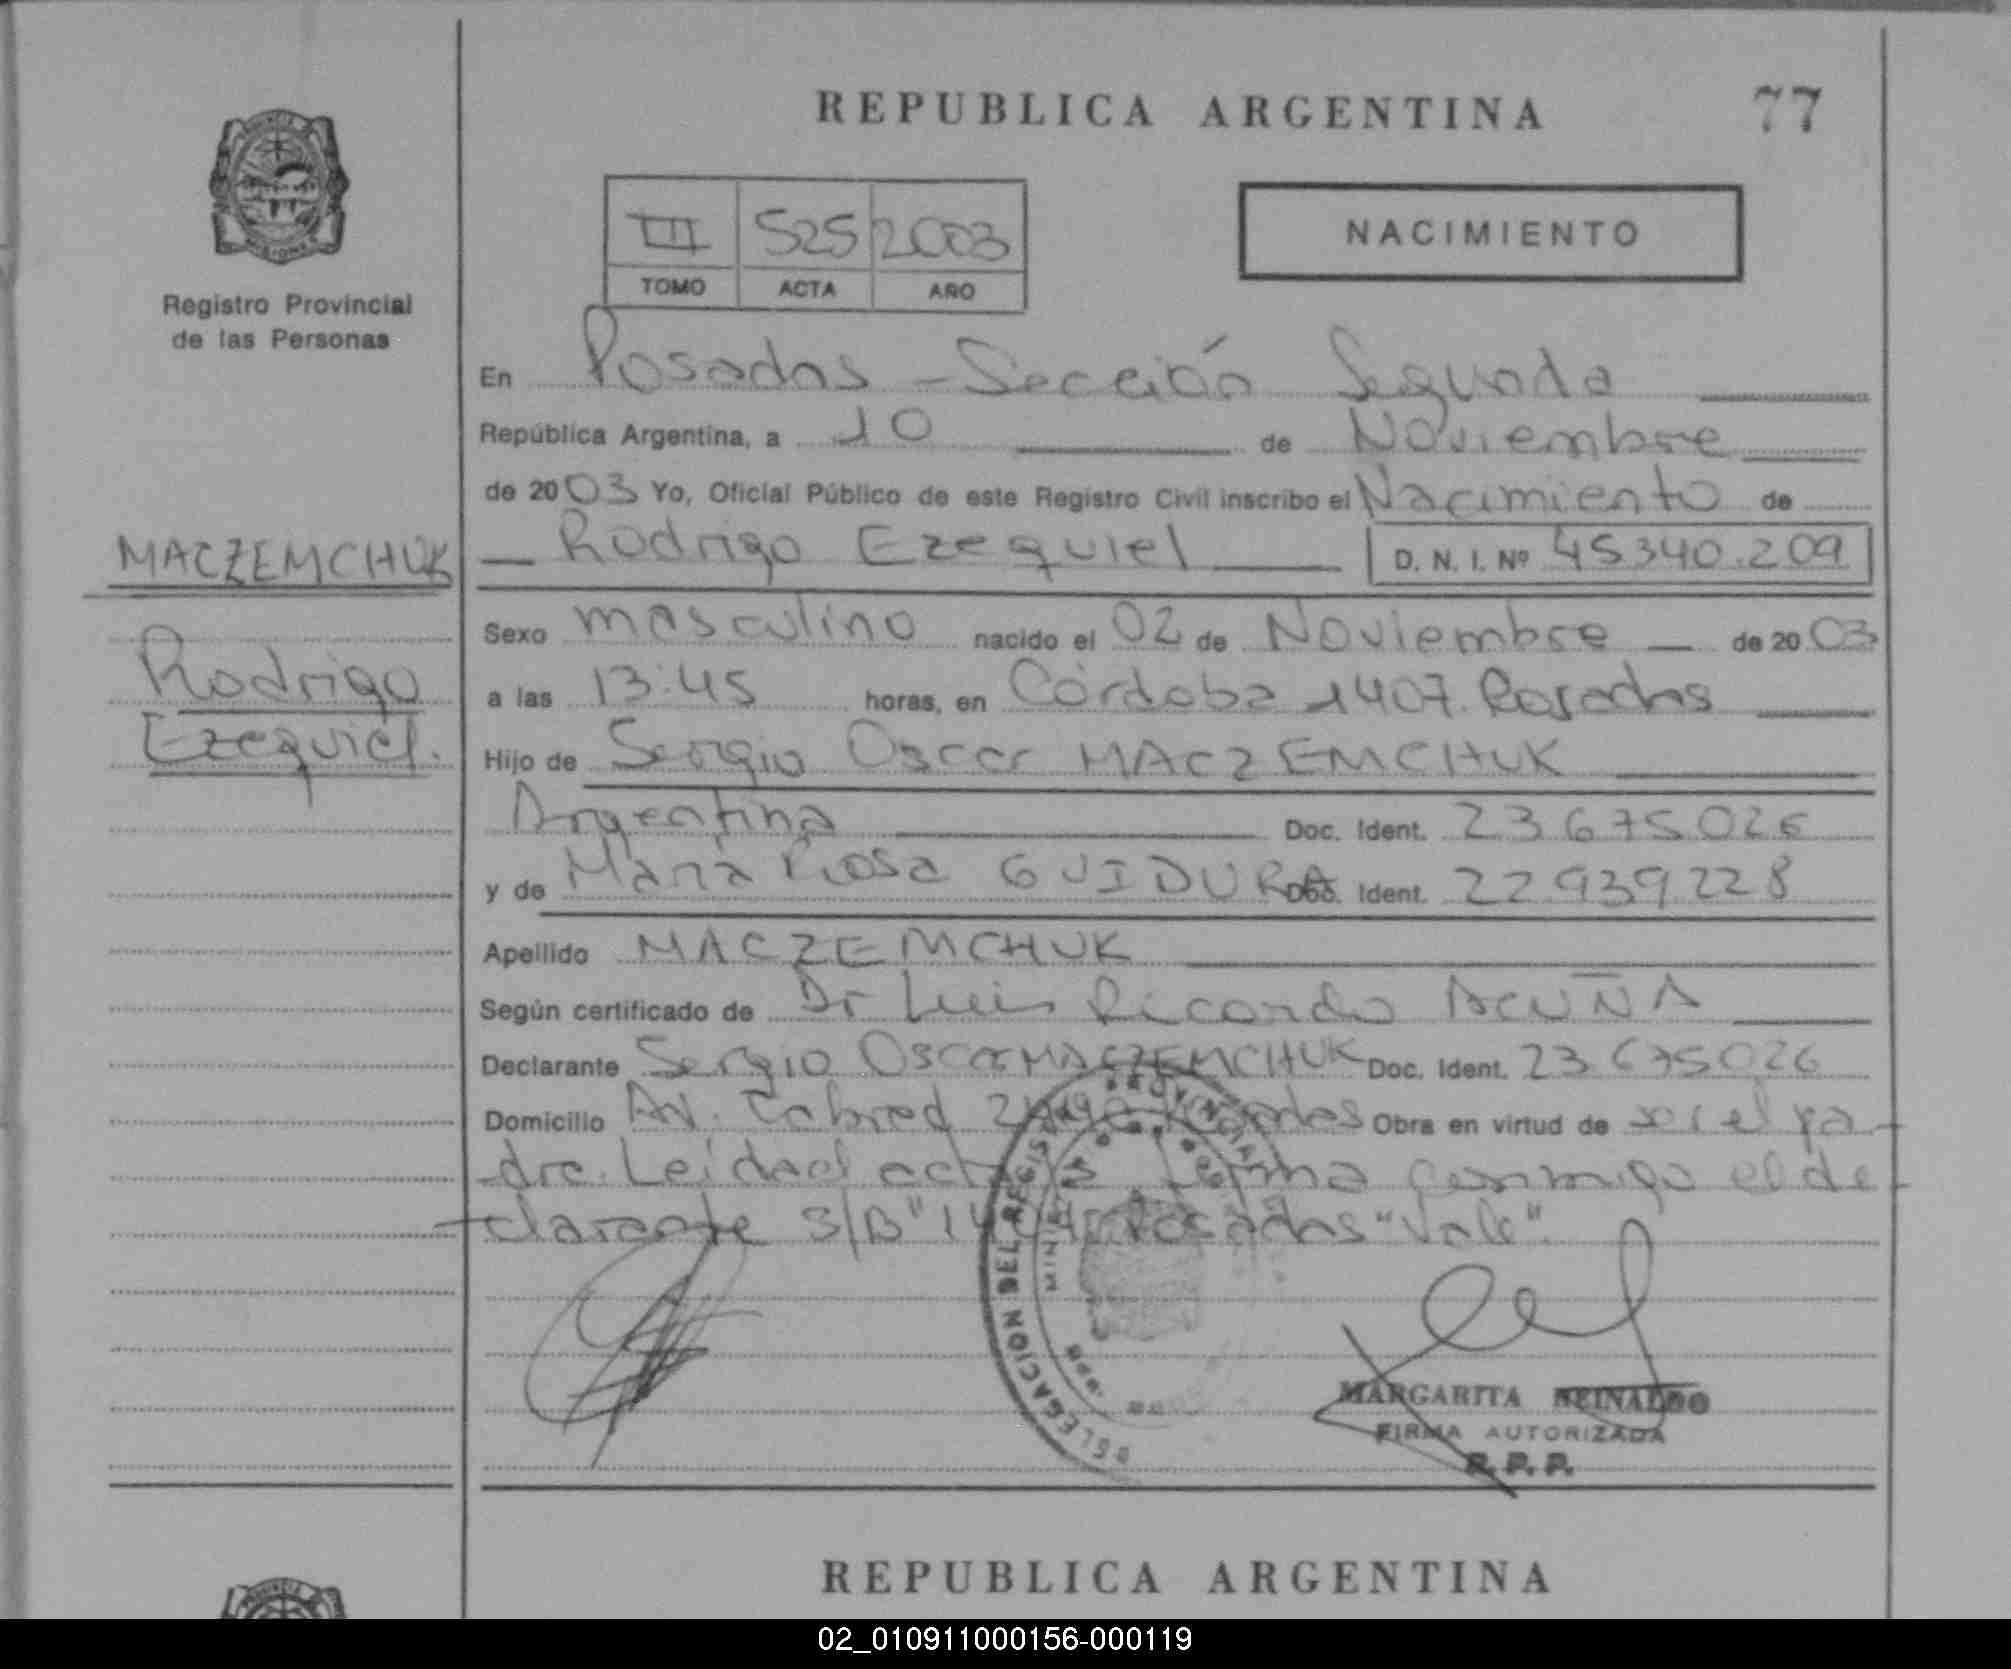 REPUBLICA ARGENTINA
77
III 525 2003
TOMO ACTA AÑO
NACIMIENTO
Registro Provincial
de las Personas
En Posadas - Sección Segunda
República Argentina, a 10 de Noviembre
de 2003 Yo, Oficial Público de este Registro Civil inscribo el Nacimiento de
MACZEMCHUK
Rodrigo Ezequiel D. N. I. Nº 45340.209
Sexo masculino nacido el 02 de Noviembre de 2003
Rodrigo
a las 13:45 horas, en Córdoba 1407. Posadas
Ezequiel.
Hijo de Sergio Oscar MACZEMCHUK
Argentina Doc. Ident. 23675026
y de María Rosa GUIDURA Doc. Ident. 22939228
Apellido MACZEMCHUK
Según certificado de Dr Luis Ricardo ACUÑA
Declarante Sergio Oscar MACZEMCHUK Doc. Ident. 23675026
Domicilio Av. Cabred Posadas Obra en virtud de ser el pa-
dre. Leida el acta firma conmigo el de-
clarante S/B" Posadas "Vale".
DELEGACION DEL REGISTRO PROVINCIAL
MARGARITA REINALDO
FIRMA AUTORIZADA
R. P. P.
REPUBLICA ARGENTINA
02_010911000156-000119